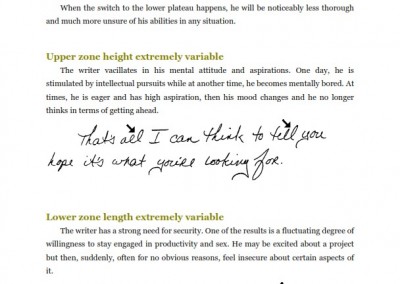 When the switch to the lower plateau happens, he will be noticeably less thorough
and much more unsure of his abilities in any situation.
Upper zone height extremely variable
The writer vacillates in his mental attitude and aspirations. One day, he is
stimulated by intellectual pursuits while at another time, he becomes mentally bored. At
times, he is eager and has high aspiration, then his mood changes and he no longer
thinks in terms of getting ahead.
That's all I can think to tell you
hope it's what you're looking for.
Lower zone length extremely variable
The writer has a strong need for security. One of the results is a fluctuating degree of
willingness to stay engaged in productivity and sex. He may be excited about a project
but then, suddenly, often for no obvious reasons, feel insecure about certain aspects of
it.